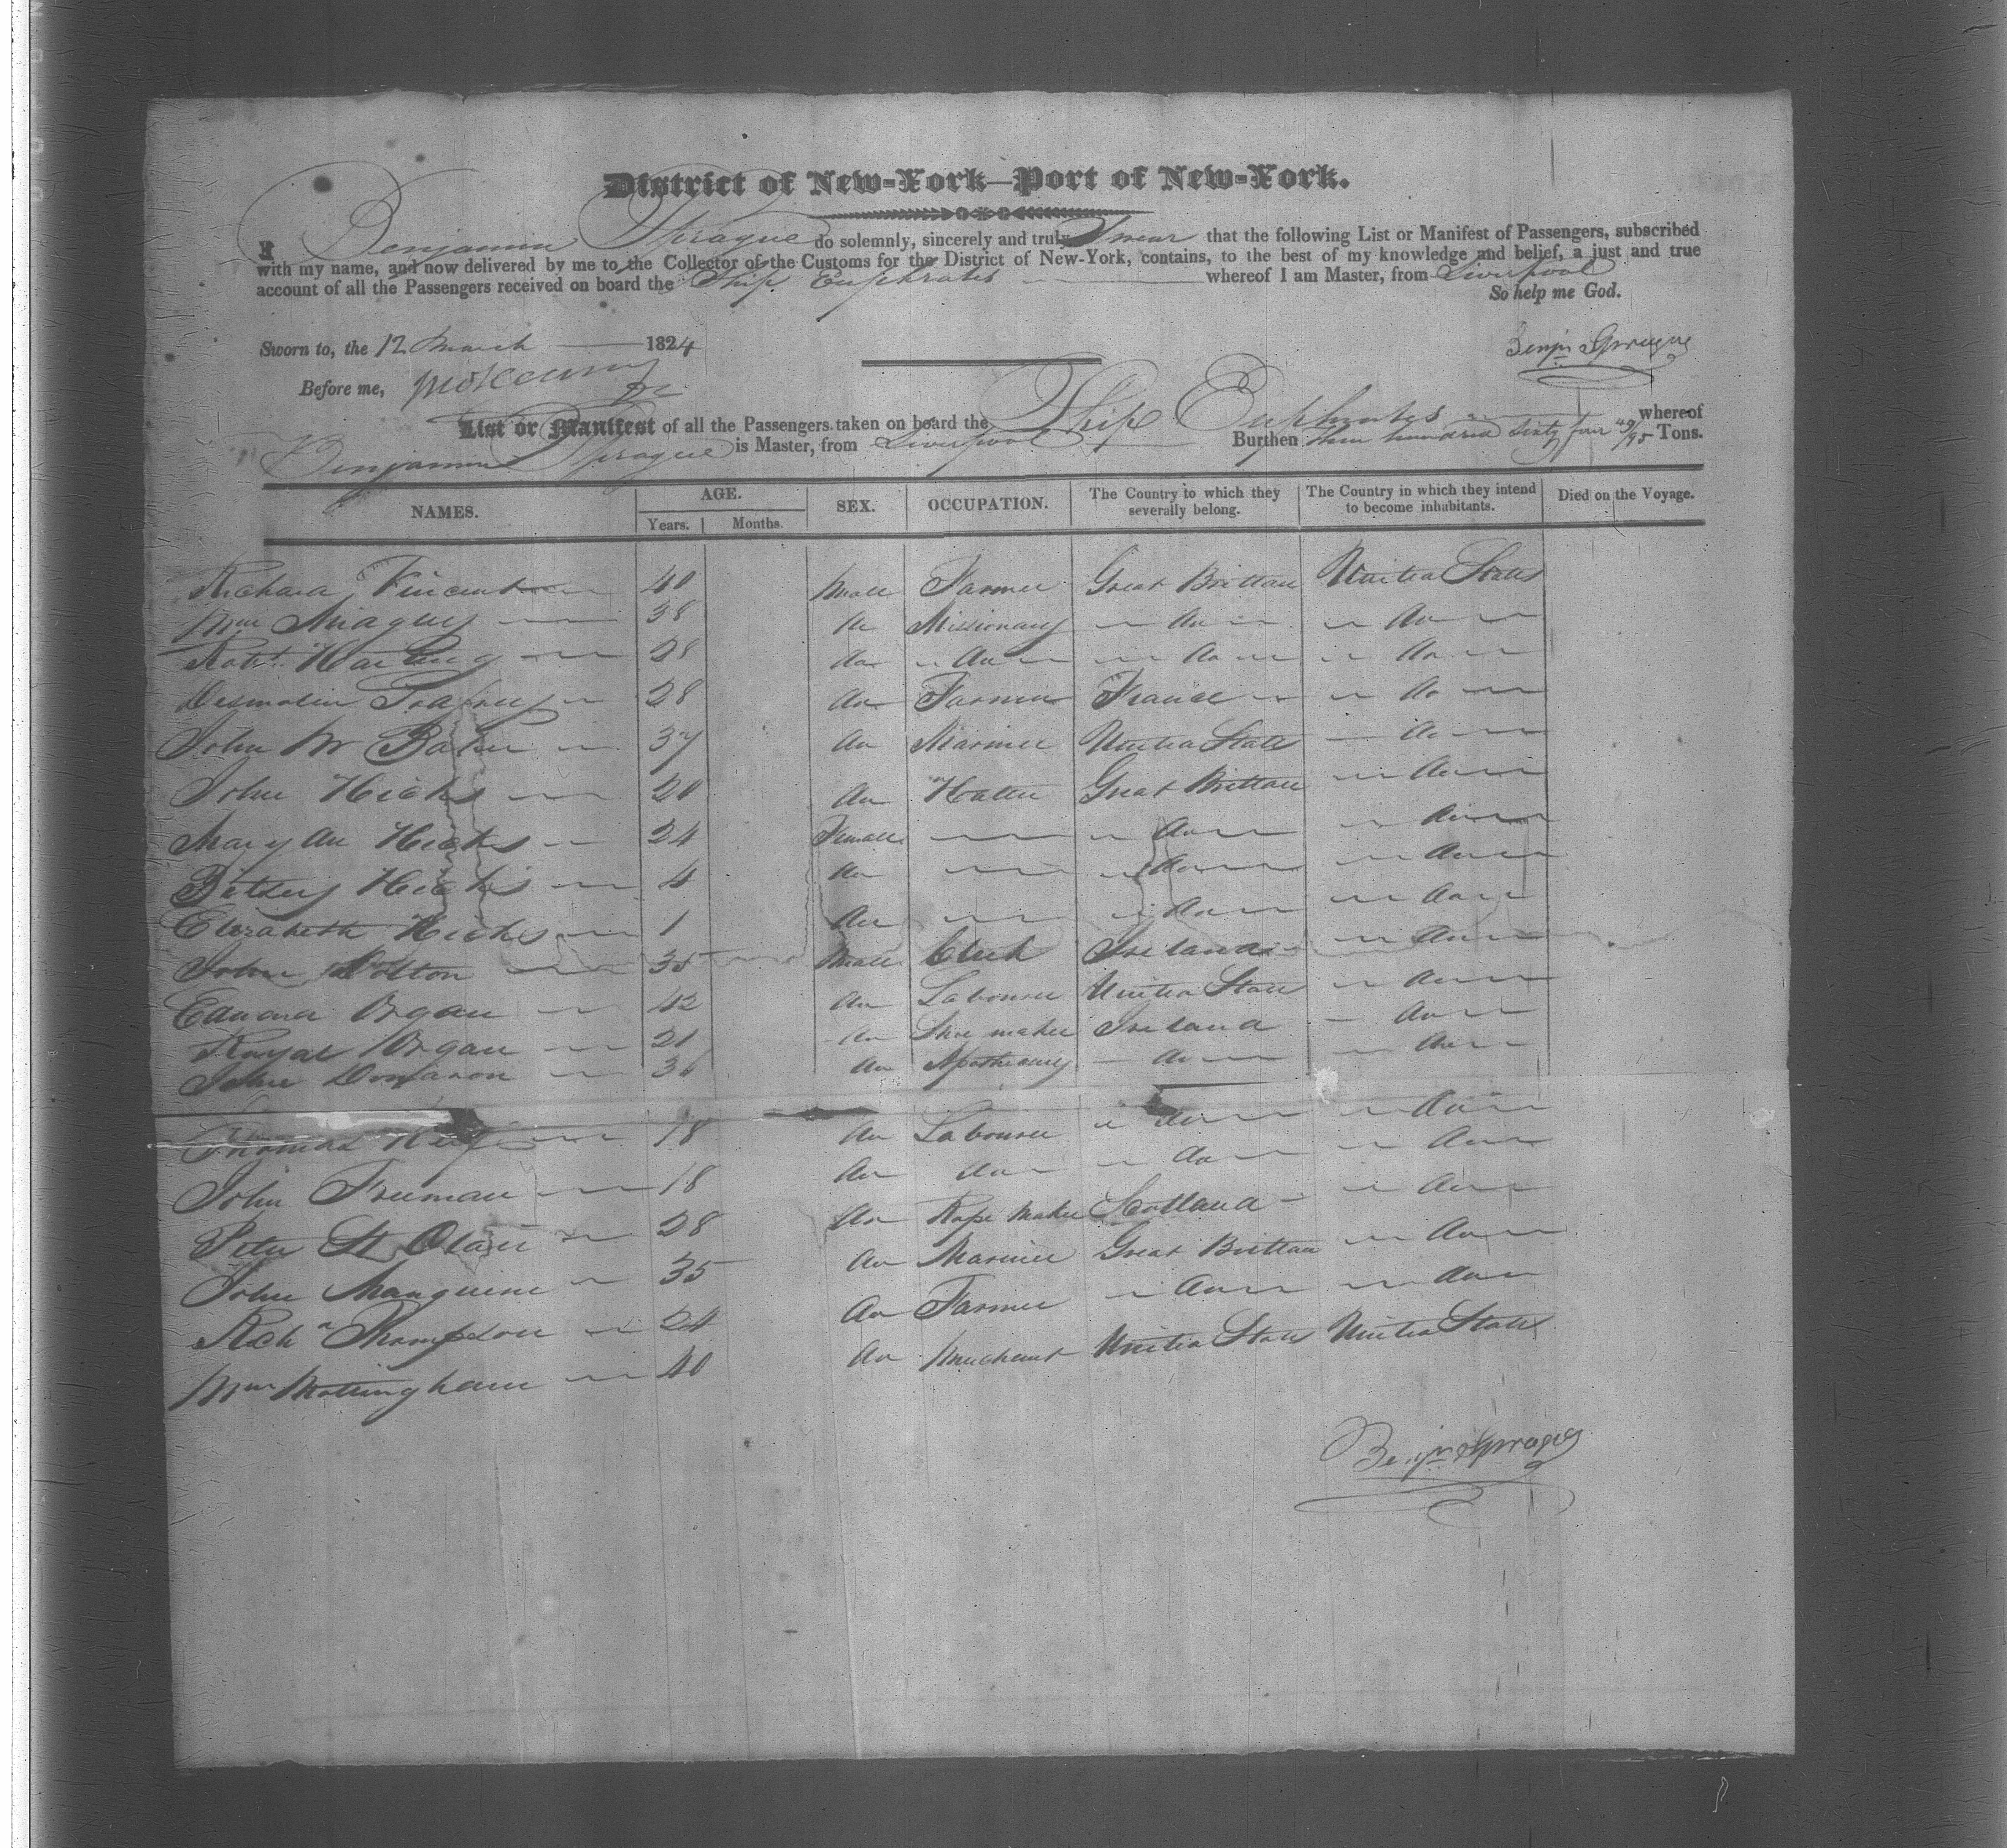 District of New-York—Port of New-York.
I Benjamin Sprague do solemnly, sincerely and truly Swear that the following List or Manifest of Passengers, subscribed
with my name, and now delivered by me to the Collector of the Customs for the District of New-York, contains, to the best of my knowledge and belief, a just and true
account of all the Passengers received on board the Ship Euphrates whereof I am Master, from Liverpool
So help me God.
Sworn to, the 12 March 1824
Benjn Sprague
Before me,
List or Manifest of all the Passengers taken on board the Ship Euphrates whereof
Benjamin Sprague is Master, from Liverpool Burthen three hundred sixty four 49/95 Tons.
NAMES. AGE. SEX. OCCUPATION. The Country to which they severally belong. The Country in which they intend to become inhabitants. Died on the Voyage.
Years. Months.
Richard Vincent 40 Male Farmer Great Brittan United States
Wm 38 do Missionary do do
Robt. 28 do do do do
28 do Farmer France do
John W Baker 37 do Mariner United States do
John Hicks 20 do Hatter Great Brittan do
Mary An Hicks 24 Female do do
Betsey Hicks 4 do do do
Elizabeth Hicks 1 do do do
John Bolton 35 Male Clerk Ireland do
Edward Organ 42 do Labourer United States do
Organ 21 do Shoe maker Ireland do
John 36 do Apothecary do do
Thomas 18 do Labourer do do
John Freeman 18 do do do do
Peter St 28 do Rope Maker Scotland do
John 35 do Mariner Great Brittan do
Richd Thompson 24 do Farmer do do
Wm Nottingham 40 do Merchant United States United States
Benjn Sprague